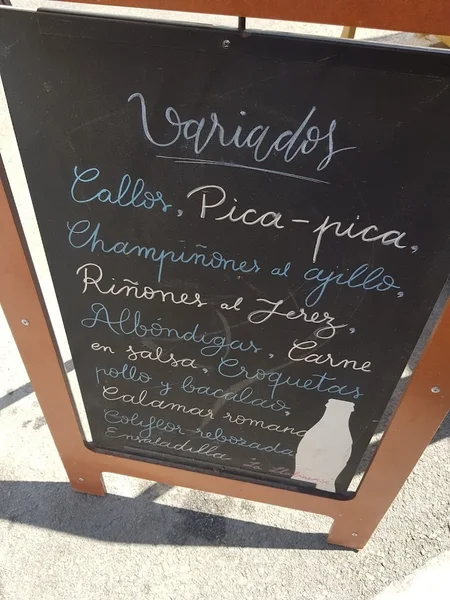 Variados
Callos, Pica-pica,
Champiñones al ajillo,
Riñones al Jerez,
Albóndigas, Carne
en salsa, Croquetas
pollo y bacalao,
Calamar romana
Coliflor rebozada
Ensaladilla